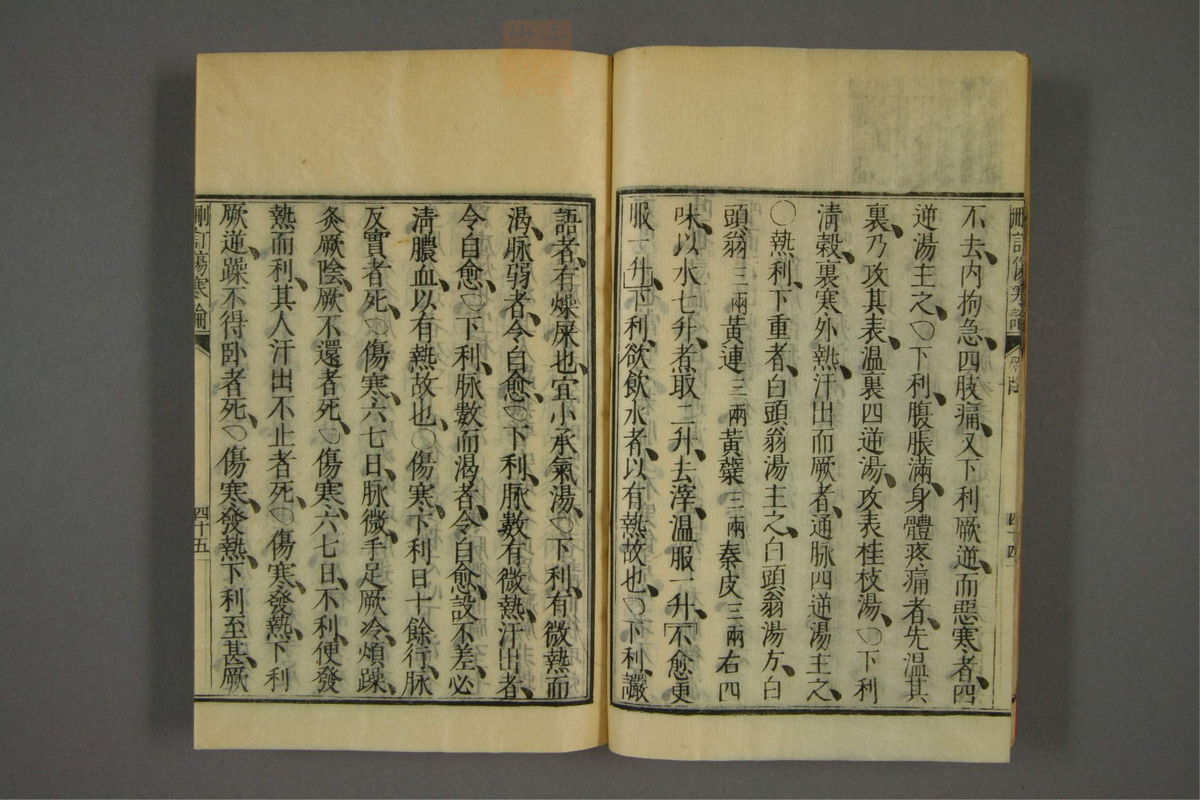 不去、内拘急、四肢痛、又下利厥逆、而惡寒者、四
逆湯主之、○下利、腹脹滿、身體疼痛者、先溫其
裏、乃攻其表、溫裏四逆湯、攻表桂枝湯、○下利
淸穀、裏寒外熱、汗出而厥者、通脉四逆湯主之、
○熱利、下重者、白頭翁湯主之、白頭翁湯方、白
頭翁三兩黃連三兩黃蘗三兩秦皮三兩右四
味、以水七升、煮取二升、去滓、溫服一升、「不愈更
服一升」、下利、欲飲水者、以有熱故也、○下利、讝
刪訂傷寒論
四十四
語者、有燥屎也、宜小承氣湯、○下利、有微熱而
渴、脉弱者、令自愈、○下利、脉數、有微熱、汗出者、
令自愈、○下利、脉數而渴者、令自愈、設不差、必
淸膿血、以有熱故也、○傷寒、下利日十餘行、脉
反實者死、○傷寒六七日、脉微、手足厥冷、煩躁、
灸厥陰、厥不還者死、○傷寒六七日、不利、便發
熱而利、其人汗出不止者死、○傷寒、發熱、下利
厥逆、躁不得卧者死、○傷寒、發熱、下利至甚、厥
刪訂傷寒論
四十五